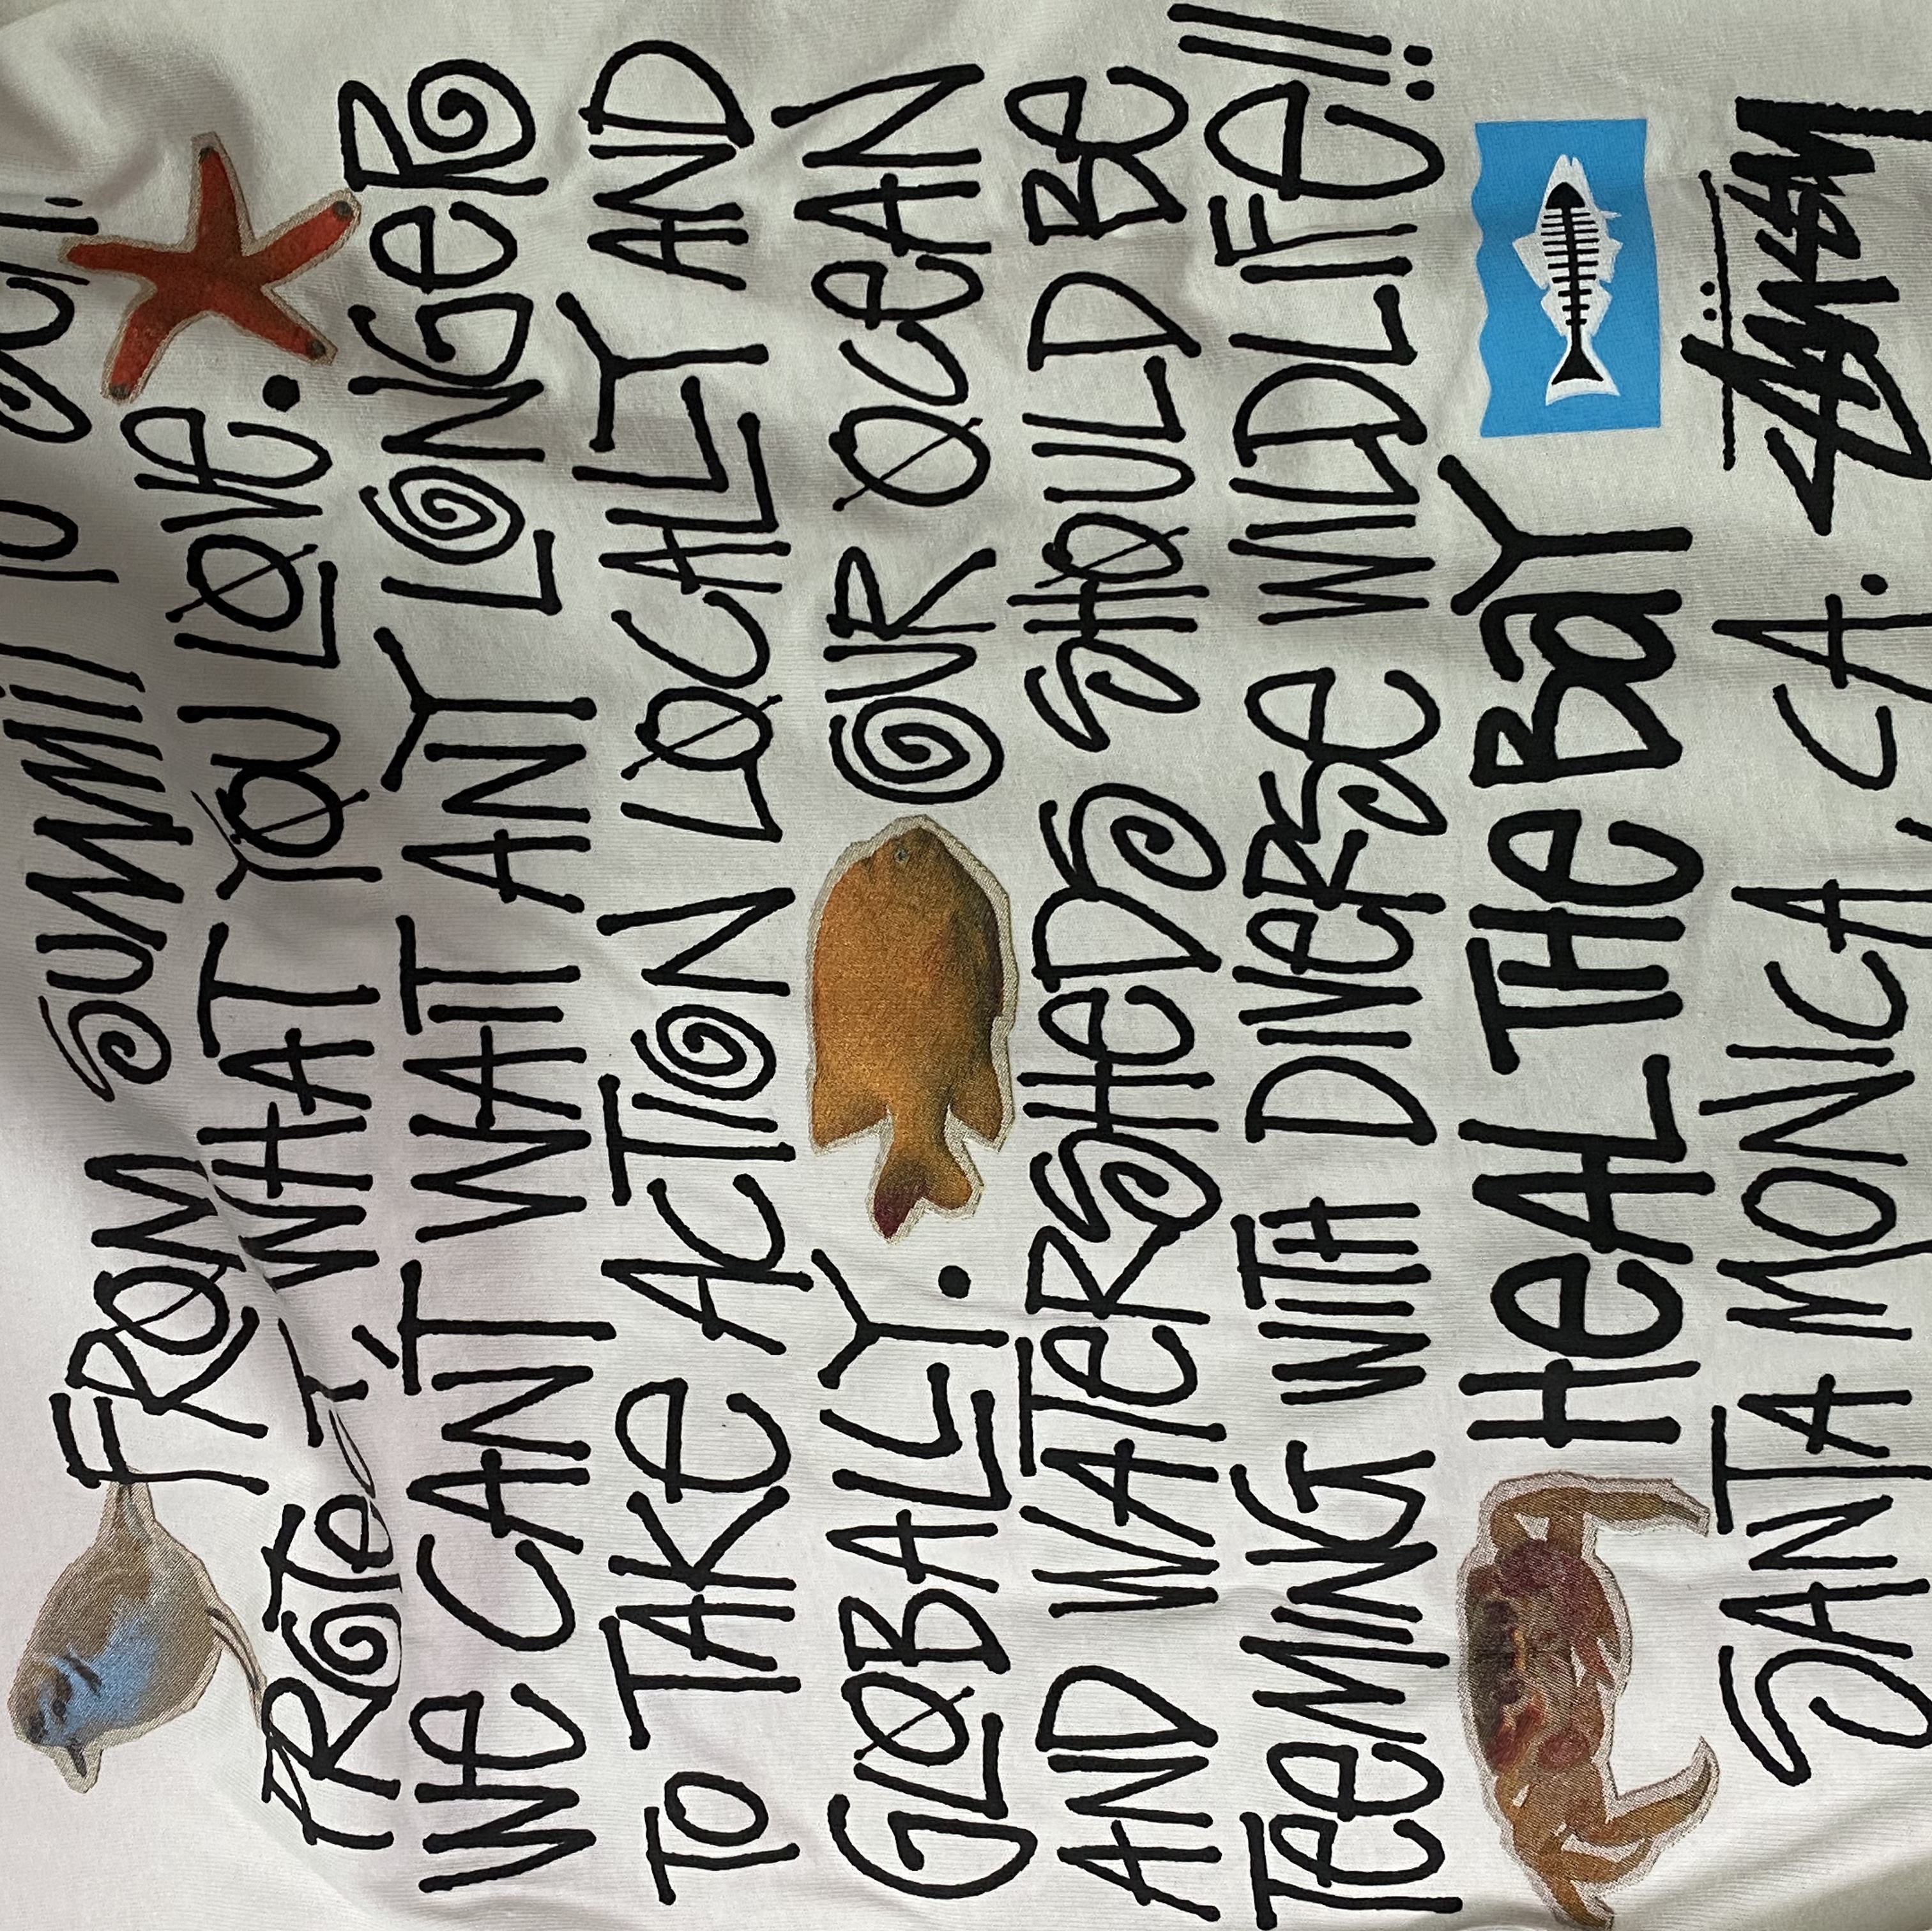 FROM SUMMIT TO SEA!
PROTECT WHAT YOU LOVE.
WE CANT WAIT ANY LONGER
TO TAKE ACTION LOCALLY AND
GLOBALLY. OUR OCEAN
AND WATERSHEDS SHOULD BE
TEEMING WITH DIVERSE WILDLIFE!!
HEAL THE BAY
SANTA MONICA, CA. Stüssy